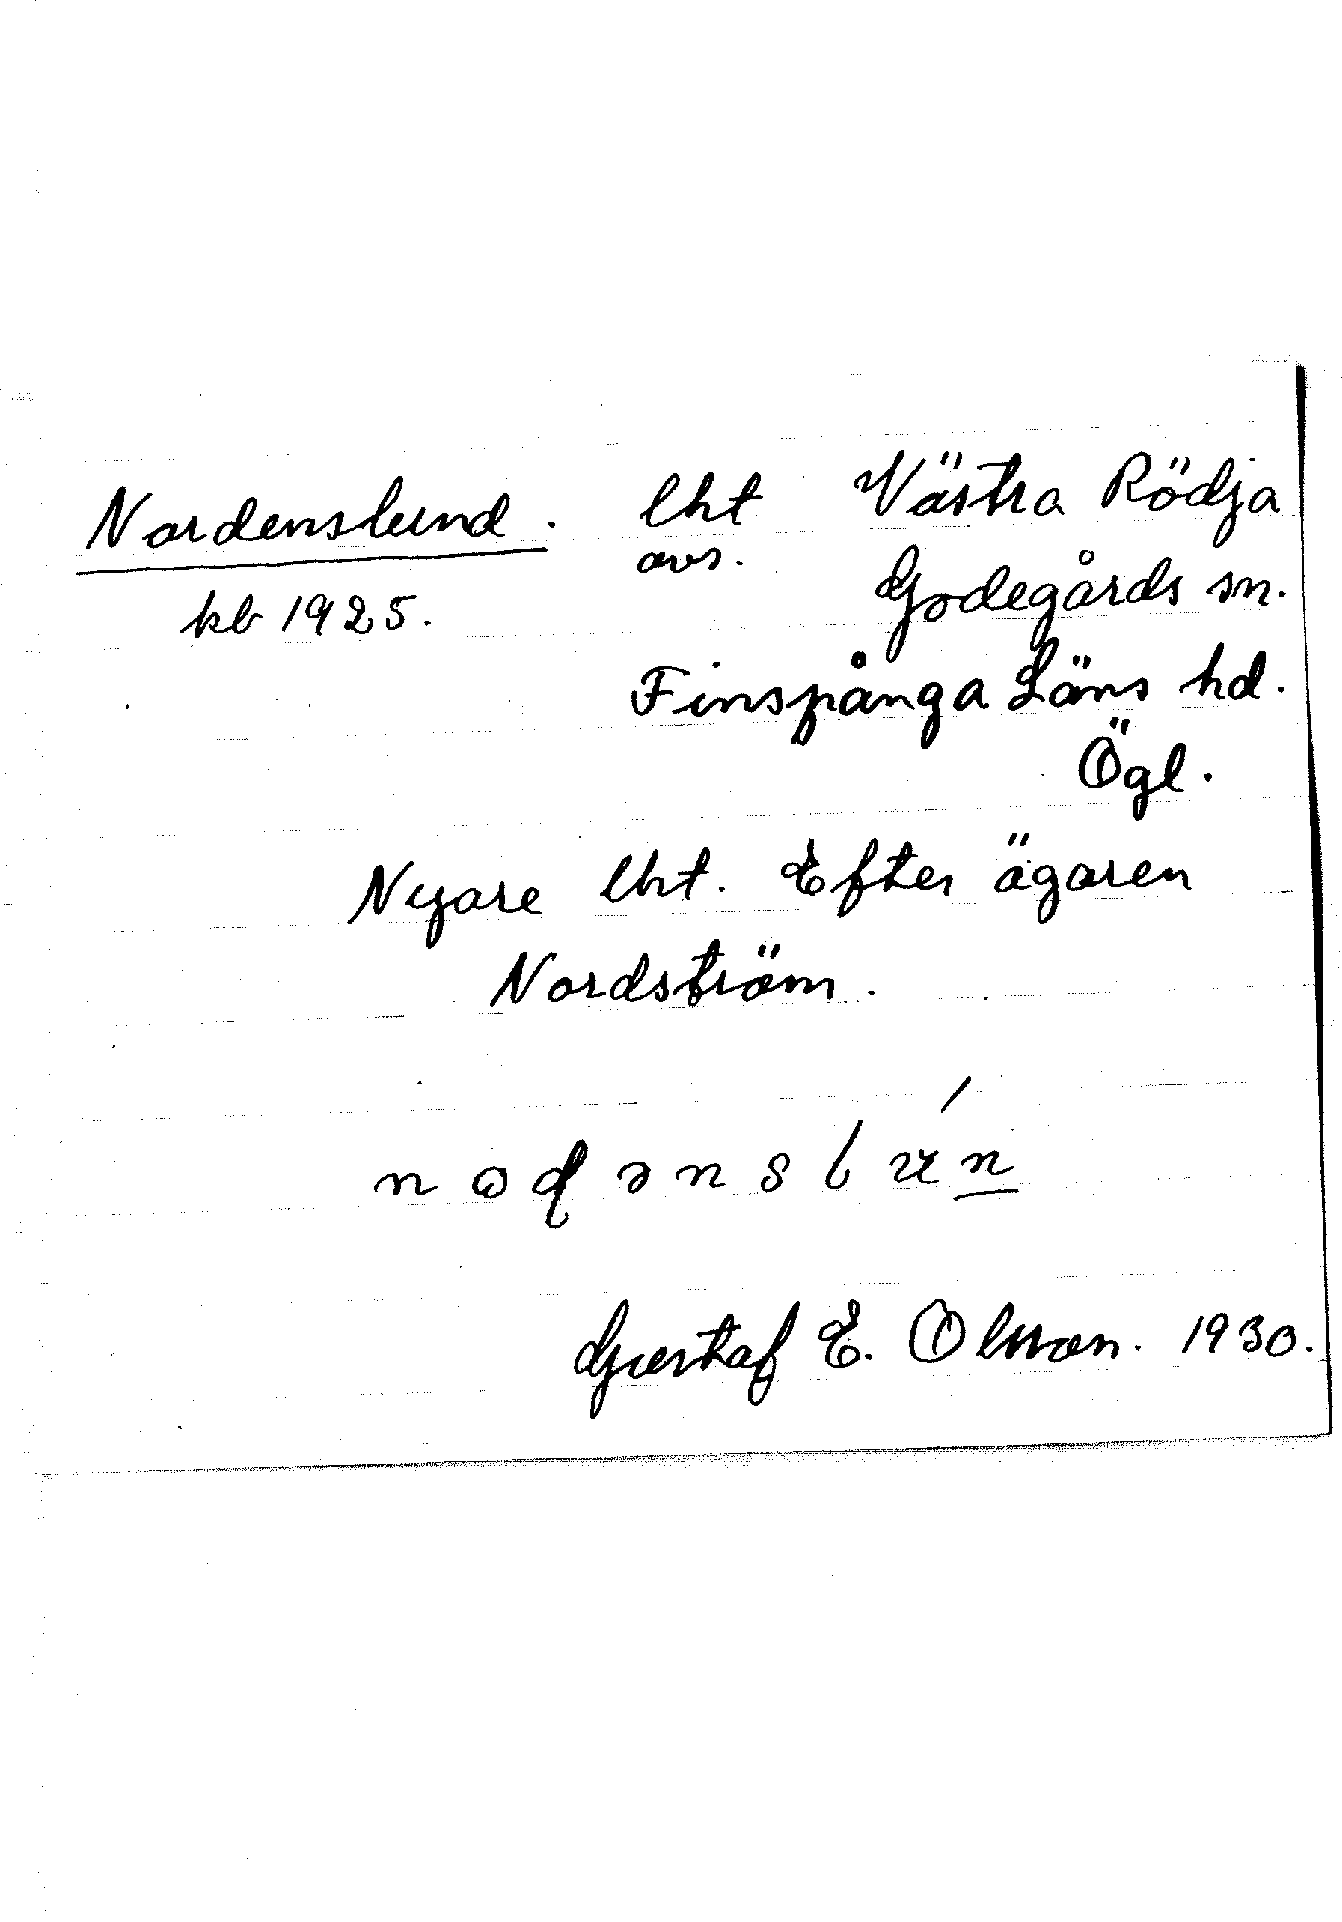 Nordenslund. lht Västra Rödja
avs. Godegårds sn.
kb 1925.
Finspånga Läns hd.
Ögl.
Nyare lht. Efter ägaren
Nordström.
Gustaf E. Olsson. 1930.